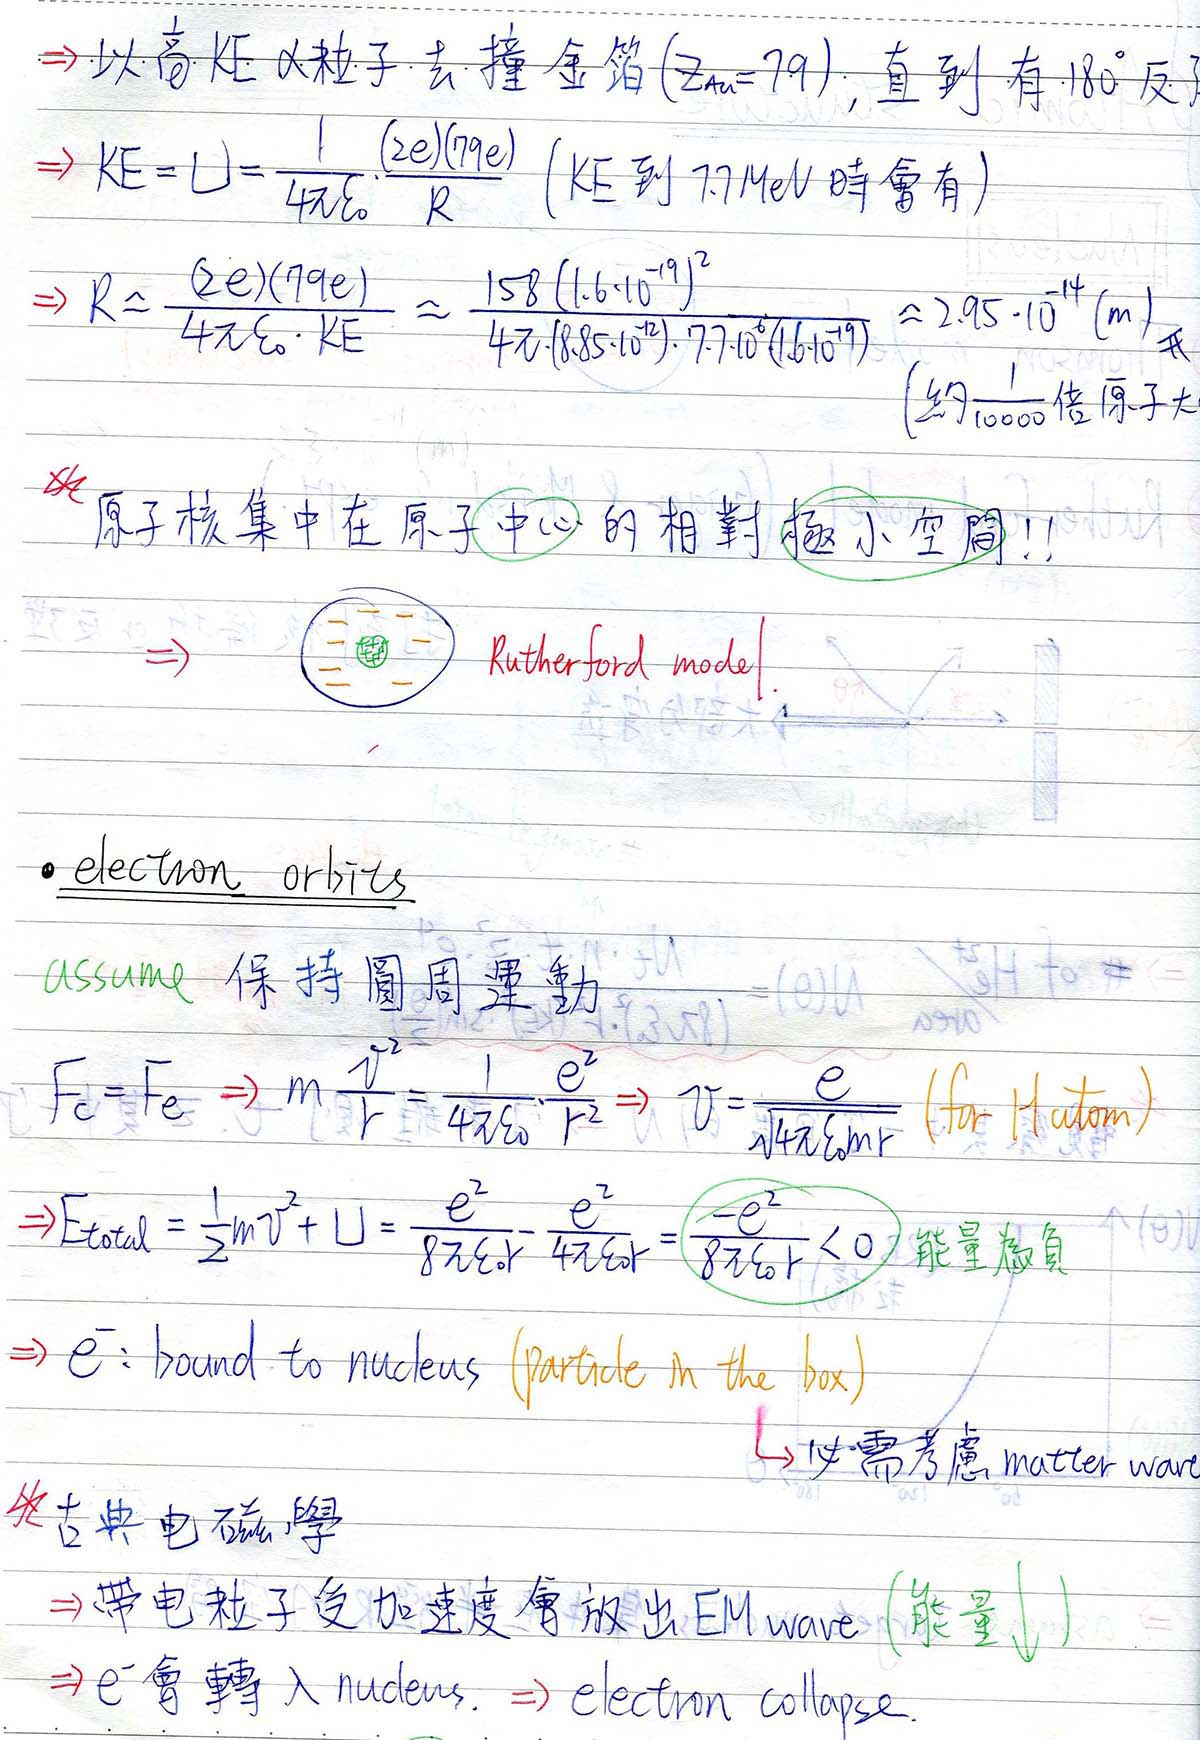 ⇒ 以高 KE α粒子去撞金箔 (Z_Au = 79), 直到有 180° 反
⇒ KE = U = \frac{1}{4πε₀} · \frac{(2e)(79e)}{R} (KE 到 7.7 MeV 時會有)
⇒ R ≈ \frac{(2e)(79e)}{4πε₀ · KE} ≈ \frac{158 (1.6·10^{-19})^2}{4π·(8.85·10^{-12})·7.7·10^6(1.6·10^{-19})} ≈ 2.95·10^{-14} (m)
(約 \frac{1}{10000} 倍原子大
※ 原子核集中在原子中心的相對極小空間!!
⇒ Rutherford model.
• electron orbits
assume 保持圓周運動
Fc = Fe ⇒ m \frac{v^2}{r} = \frac{1}{4πε₀} · \frac{e^2}{r^2} ⇒ v = \frac{e}{\sqrt{4πε₀mr}} (for H atom)
⇒ E_total = \frac{1}{2}mv^2 + U = \frac{e^2}{8πε₀r} - \frac{e^2}{4πε₀r} = \frac{-e^2}{8πε₀r} < 0 能量為負
⇒ e⁻: bound to nucleus (particle in the box)
↳ 必需考慮 matter wave
※ 古典电磁學
⇒ 帶电粒子受加速度會放出 EM wave (能量↓)
⇒ e⁻會轉入 nucleus. ⇒ electron collapse.